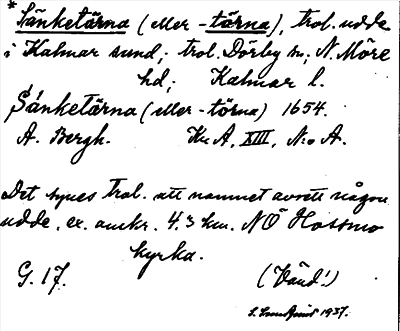 *Sänketärna (eller -törna), trol. udde
i Kalmar sund; trol. Dörby sn; N. Möre
hd; Kalmar l.
Sänketärna (eller -törna) 1654.
A. Bergh. KrA, XIII, N:o A.
Det synes trol. att namnet avsett någon
udde, ex. omkr. 4.3 km. NÖ Hossmo
kyrka.
G. 17. (Vänd!)
1937.